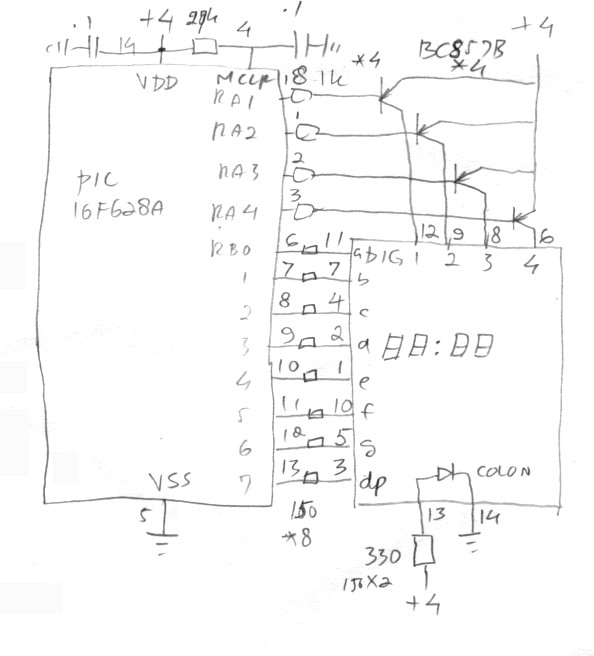 .1 14 +4 4 .1
VDD MCLR
18 1k *4
BC857B
*4
+4
RA1
RA2 1
RA3 2
RA4 3
PIC
16F628A
RB0 6 11 a DIG 1 2 3 4
12 9 8 6
1 7 7 b
2 8 4 c
3 9 2 d
4 10 1 e
5 11 10 f
6 12 5 g
7 13 3 dp
COLON
13 14
VSS
5
150
*8
330
150X2
+4